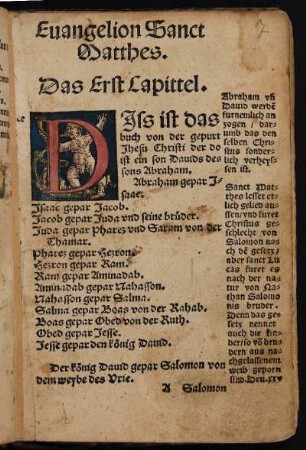 7
Euangelion Sanct
Matthes.
Das Erst Capittel.
DIss ist das
buch von der gepurt
Jhesu Christi der do
ist ein son Dauids des
sons Abraham.
Abraham gepar J-
saac.
Isaac gepar Jacob.
Jacob gepar Juda vnd seine brüder.
Juda gepar Pharez vnd Saram von der
Thamar.
Pharez gepar Hezron.
Hezron gepar Ram.
Ram gepar Aminadab.
Aminadab gepar Nahasson.
Nahasson gepar Salma.
Salma gepar Boas von der Rahab.
Boas gepar Obed von der Ruth.
Obed gepar Jesse.
Jesse gepar den könig Dauid.
Der könig Dauid gepar Salomon von
dem weybe des Vrie.
A Salomon
Abraham vñ
Dauid werdẽ
furnemlich an
zogen/ dar-
umb das den
selben Christus
sonder-
lich verheys-
sen ist.
Sanct Mat-
theo lesset etz-
lich gelied aus-
sen/ vnd furet
Christus ge-
schlecht von
Salomon nach
dẽ gesetz/
aber sanct Lu-
cas furet es
nach der na-
tur von Na-
than Salomo
nis bruder.
Denn das ge-
setz nennet
auch die kin-
der/ so võ brü-
dern aus nach
gelassenem
weib geporn
sind. Deu. xxv